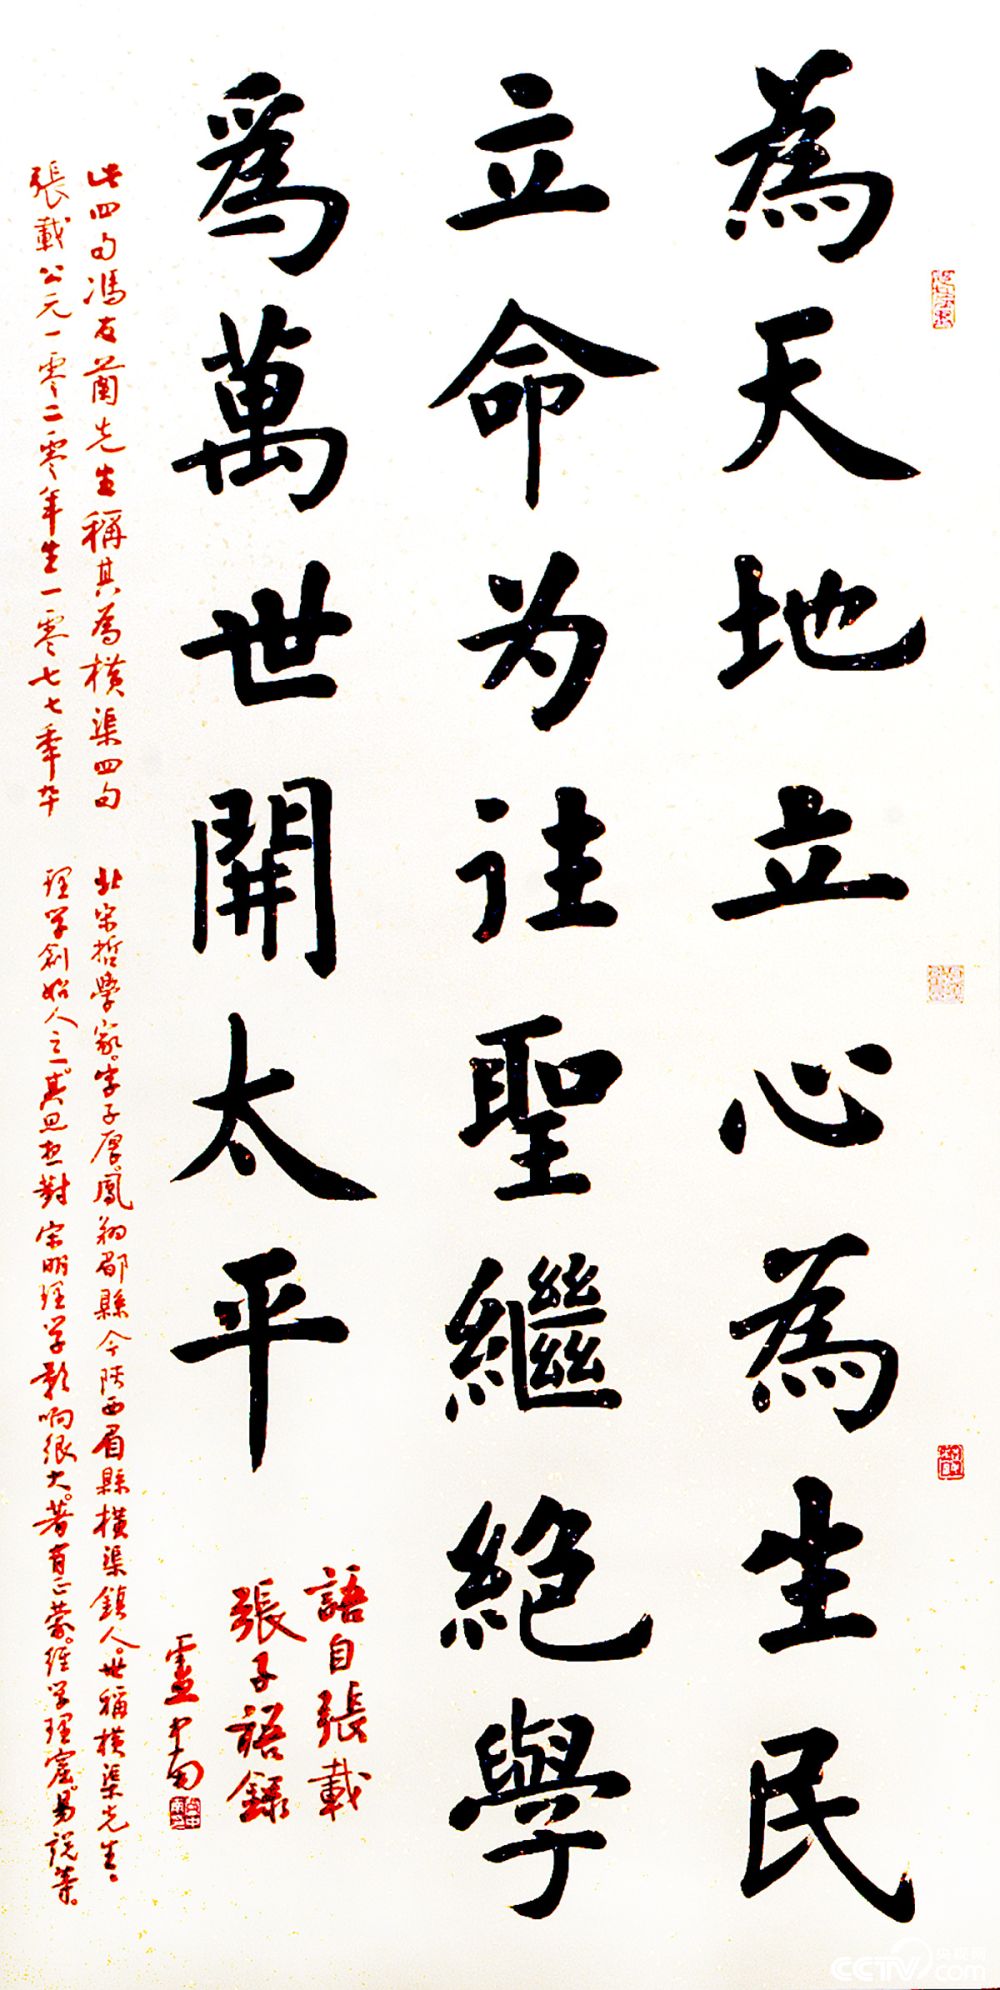 為天地立心為生民
立命为往聖繼絕學
爲萬世開太平
語自張載
張子語錄
盧中南
此四句馮友蘭先生稱其為橫渠四句
張載公元一零二零年生一零七七季卒
北宋哲學家。字子厚，鳳翔郿縣今陕西眉縣橫渠鎮人。世稱橫渠先生、
理学創始人之一。其思想對宋明理学影响很大。著有正蒙。經学理窟。易說等。
央视网
CCTV.com